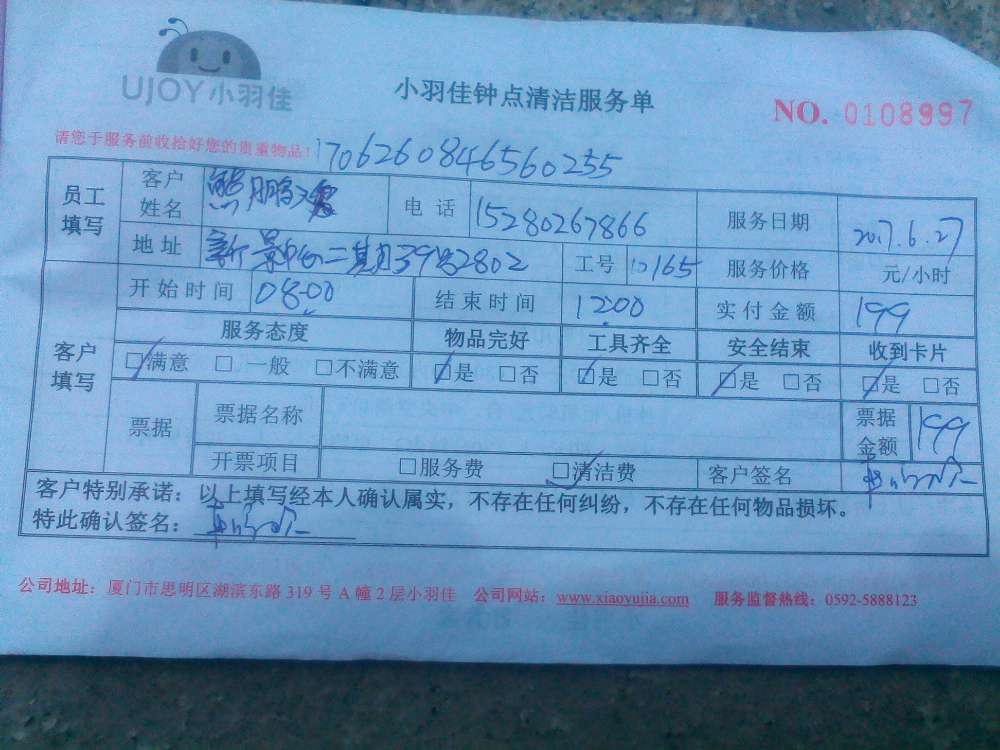 UJOY小羽佳
小羽佳钟点清洁服务单
NO. 0108997
请您于服务前收拾好您的贵重物品！1706260846560255
员工填写 客户姓名 熊鹏 电话 15280267866 服务日期 2017.6.27
地址 新景中心二期39号2802 工号 10165 服务价格 元/小时
客户填写 开始时间 08:00 结束时间 12:00 实付金额 199
服务态度 物品完好 工具齐全 安全结束 收到卡片
□满意 □一般 □不满意 □是 □否 □是 □否 □是 □否 □是 □否
票据 票据名称 票据金额 199
开票项目 □服务费 □清洁费 客户签名
客户特别承诺：以上填写经本人确认属实，不存在任何纠纷，不存在任何物品损坏。
特此确认签名：
公司地址：厦门市思明区湖滨东路319号A幢2层小羽佳 公司网站：www.xiaoyujia.com 服务监督热线：0592-5888123